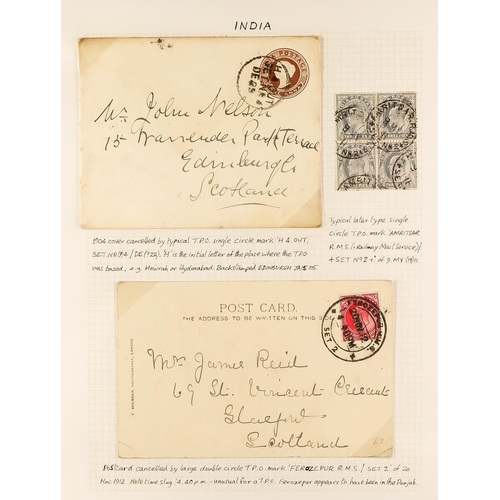 INDIA
Mr John Nelson
15 Warrender Park Terrace
Edinburgh
Scotland
1904 cover cancelled by typical T.P.O. single circle mark 'H 4. OUT/
'H' is the initial letter of the place where the T.P.O
was based, e.g. Howrah or Hyderabad. Backstamped EDINBURGH
Typical later type single
circle T.P.O. mark 'AMRITSAR
R.M.S. (=Railway Mail Service)/
+ SET No 2 +' of 9 MY
POST CARD.
THE ADDRESS TO BE WRITTEN ON THIS
FEROZEPUR R.M.S.
SET 2
Mr James Reid
69 St. Vincent Crescent
Glasgow
Scotland
Postcard cancelled by large double circle T.P.O. mark 'FEROZEPUR R.M.S./ SET 2' of 20
Nov. 1912. Note time slug '4.20 p.m. - unusual for a T.P.O. Ferozepur appears to have been in the Punjab.